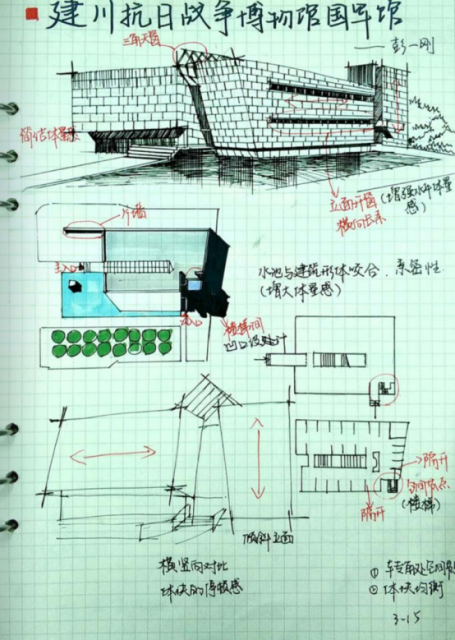 建川抗日战争博物馆国军馆
——彭一刚
三角天窗
立面开窗
横向长条
(增强水平体量感)
片墙
主入口
水池与建筑形体咬合,亲密性
(增大体量感)
楼梯间
凹口设计
隔开
(楼梯)
隔开
倾斜立面
横竖向对比
体块的厚板感
①
②体块均衡
3-15